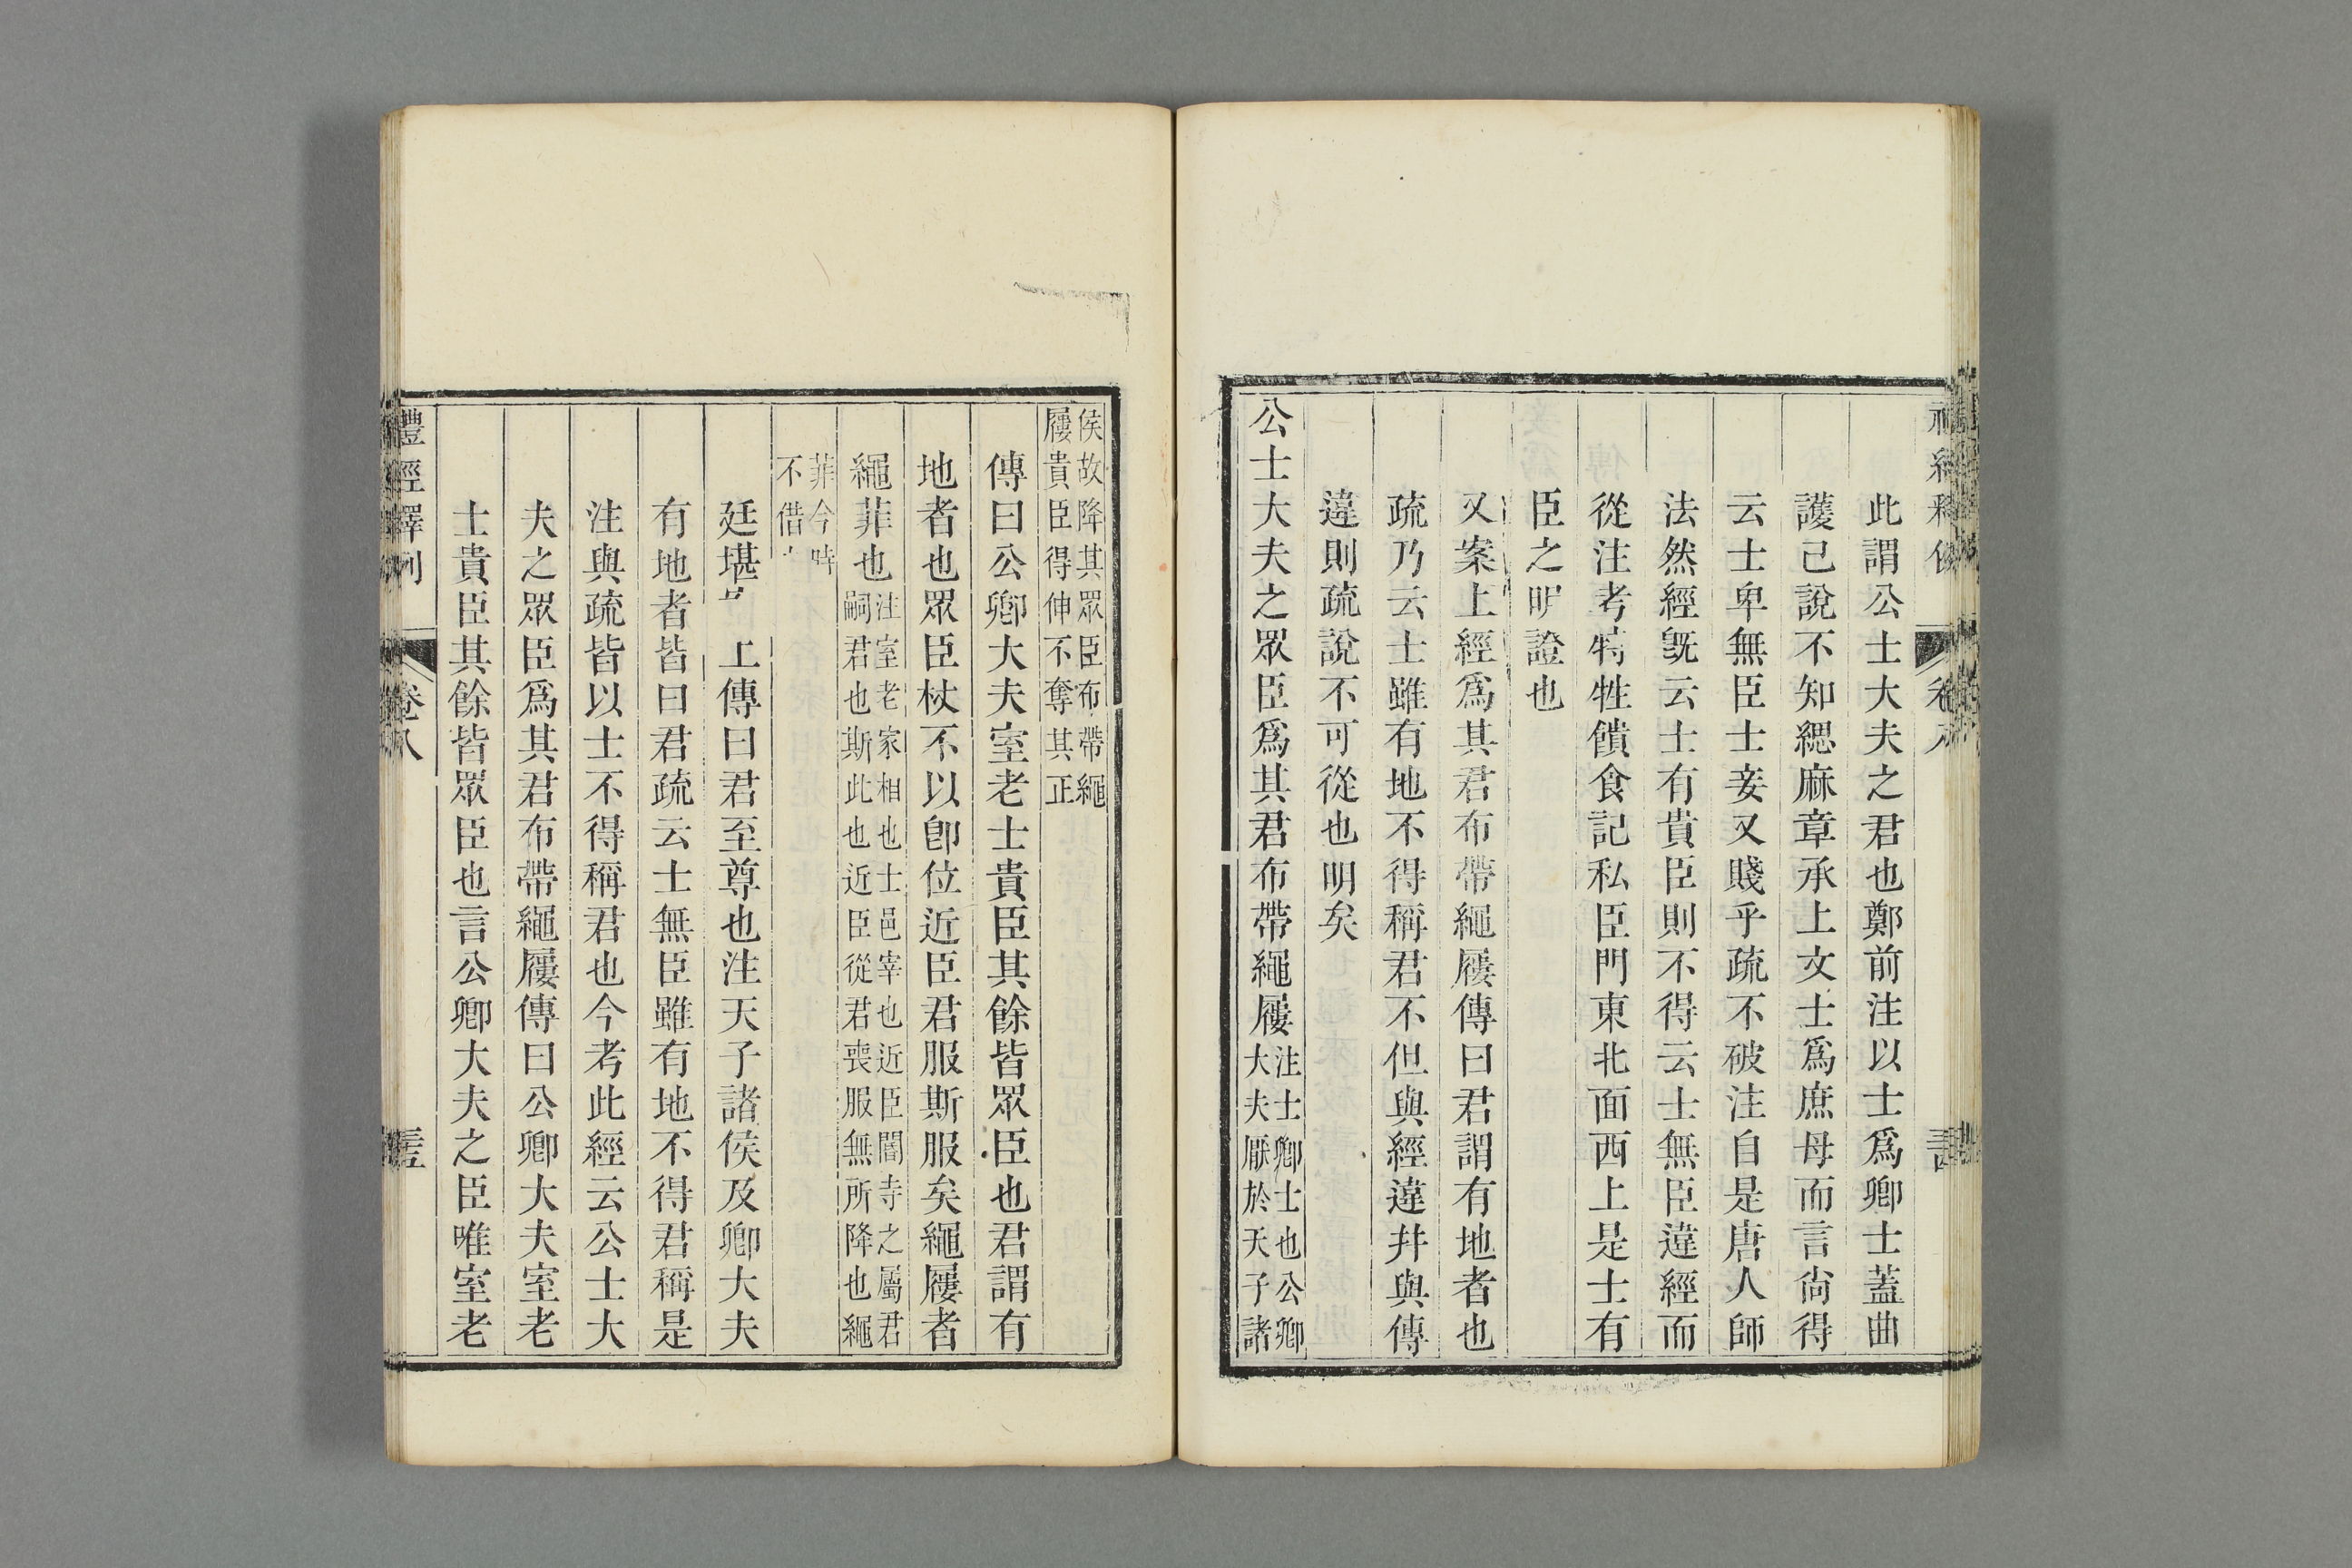 卷八
此謂公士大夫之君也鄭前注以士爲卿士蓋曲
護己說不知緦麻章承上文士爲庶母而言尙得
云士卑無臣士妾又賤乎疏不破注自是唐人師
法然經旣云士有貴臣則不得云士無臣違經而
從注考特牲饋食記私臣門東北面西上是士有
臣之明證也
又案上經爲其君布帶繩屨傳曰君謂有地者也
疏乃云士雖有地不得稱君不但與經違幷與傳
違則疏說不可從也明矣
公士大夫之眾臣爲其君布帶繩屨注士卿士也公卿
大夫厭於天子諸
侯故降其眾臣布帶繩
屨貴臣得伸不奪其正
傳曰公卿大夫室老士貴臣其餘皆眾臣也君謂有
地者也眾臣杖不以卽位近臣君服斯服矣繩屨者
繩菲也注室老家相也士邑宰也近臣閽寺之屬君
嗣君也斯此也近臣從君喪服無所降也繩
菲今時
不借
廷堪上傳曰君至尊也注天子諸侯及卿大夫
有地者皆曰君疏云士無臣雖有地不得君稱是
注與疏皆以士不得稱君也今考此經云公士大
夫之眾臣爲其君布帶繩屨傳曰公卿大夫室老
士貴臣其餘皆眾臣也言公卿大夫之臣唯室老
禮經釋例 卷八